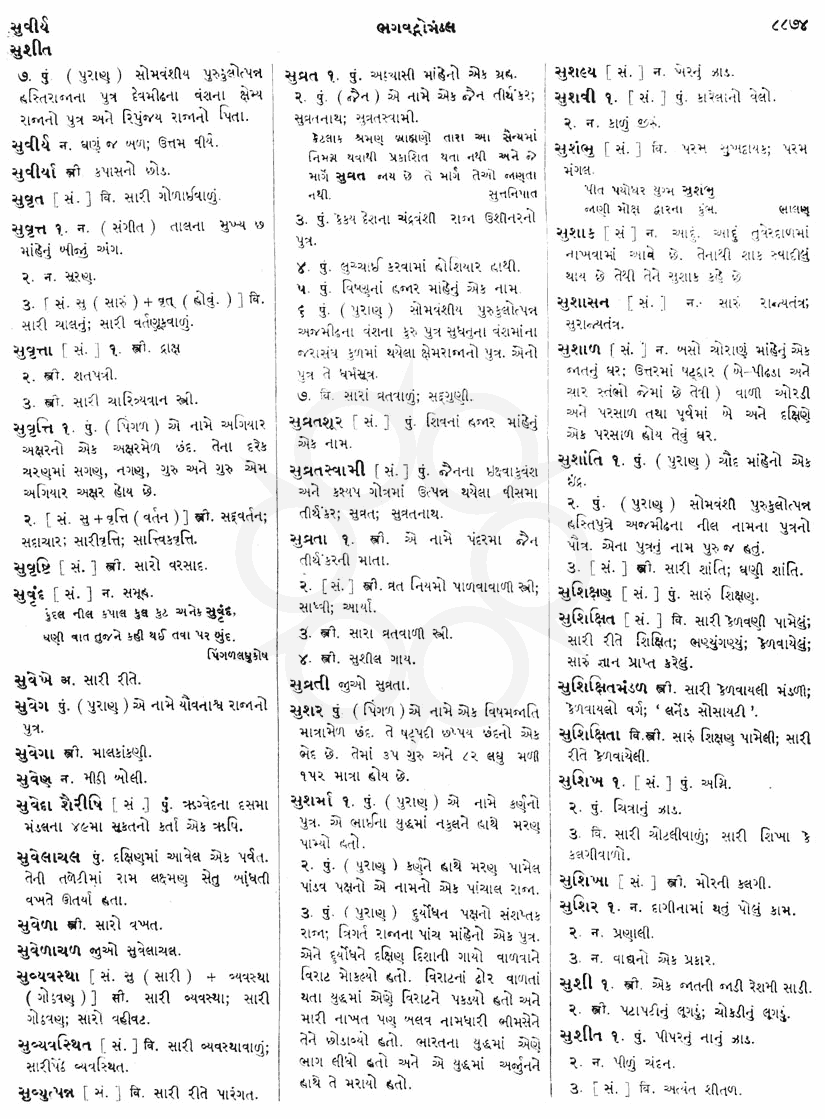 સુવીર્ય
સુશીત
ભગવદ્ગોમંડલ
૮૮૭૪
૭. પું. ( પુરાણ ) સોમવંશીય પુરુકુલોત્પન્ન
હસ્તિરાજાના પુત્ર દેવમીઢના વંશના ક્ષેમ્ય
રાજાનો પુત્ર અને રિપુંજય રાજાનો પિતા.
સુવીર્ય ન. ઘણું જ બળ; ઉત્તમ વીર્ય.
સુવીર્યા સ્ત્રી કપાસનો છોડ.
સુવૃત [ સં. ] વિ. સારી ગોળાઈવાળું.
સુવૃત્ત ૧. ન. ( સંગીત ) તાલના મુખ્ય છ
માંહેનું બીજું અંગ.
૨. ન. સૂરણ.
૩. [ સં. સુ ( સારું ) + વૃત્ ( હોવું. ) ] વિ.
સારી ચાલનું; સારી વર્તણૂકવાળું.
સુવૃત્તા [ સં. ] ૧. સ્ત્રી. દ્રાક્ષ
૨. સ્ત્રી. શતપત્રી.
૩. સ્ત્રી. સારી ચારિત્ર્યવાન સ્ત્રી.
સુવૃત્તિ ૧. પું. ( પિંગળ ) એ નામે અગિયાર
અક્ષરનો એક અક્ષરમેળ છંદ. તેના દરેક
ચરણમાં સગણ, નગણ, ગુરુ અને ગુરુ એમ
અગિયાર અક્ષર હોય છે.
૨. [ સં. સુ + વૃત્તિ ( વર્તન ) ] સ્ત્રી. સદ્વર્તન;
સદાચાર; સારીવૃત્તિ; સાત્ત્વિકવૃત્તિ.
સુવૃષ્ટિ [ સં. ] સ્ત્રી. સારો વરસાદ.
સુવૃંદ [ સં. ] ન. સમૂહ.
કુંદલ નીલ કપાલ કુલ કુટ અનેક સુવૃંદ,
ઘણી વાત તુજને કહી થઈ તવા પર છુંદ.
પિંગળલઘુકોષ
સુવેખે અ. સારી રીતે.
સુવેગ પું. ( પુરાણ ) એ નામે યૌવનાશ્વ રાજાનો
પુત્ર.
સુવેગા સ્ત્રી. માલકાંકણી.
સુવેણ ન. મીઠી બોલી.
સુવેદા શૈરીષિ [ સં. ] પું. ઋગ્વેદના દસમા
મંડલના ૪૯મા સૂક્તનો કર્તા એક ઋષિ.
સુવેલાચલ પું. દક્ષિણમાં આવેલ એક પર્વત.
તેની તળેટીમાં રામ લક્ષ્મણ સેતુ બાંધતી
વખતે ઊતર્યા હતા.
સુવેળા સ્ત્રી. સારો વખત.
સુવેળાચળ જુઓ સુવેલાચલ.
સુવ્યવસ્થા [ સં. સુ ( સારી ) + વ્યવસ્થા
( ગોઠવણ ) ] સ્ત્રી. સારી વ્યવસ્થા; સારી
ગોઠવણ; સારો વહીવટ.
સુવ્યવસ્થિત [ સં. ] વિ. સારી વ્યવસ્થાવાળું;
સારીપેઠે વ્યવસ્થિત.
સુવ્યુત્પન્ન [ સં. ] વિ. સારી રીતે પારંગત.
સુવ્રત ૧. પું. અઠ્યાસી માંહેનો એક ગ્રહ.
૨. પું. ( જૈન ) એ નામે એક જૈન તીર્થંકર;
સુવ્રતનાથ; સુવ્રતસ્વામી.
કેટલાક શ્રમણ બ્રાહ્મણો તારા આ સૈન્યમાં
નિમગ્ન થવાથી પ્રકાશિત થતા નથી અને જે
માર્ગે સુવ્રત જાય છે તે માર્ગ તેઓ જાણતા
નથી. સુત્તનિપાત
૩. પું. કૈકય દેશના ચંદ્રવંશી રાજા ઉશીનરનો
પુત્ર.
૪. પું. લુચ્ચાઈ કરવામાં હોશિયાર હાથી.
૫. પું. વિષ્ણુનાં હજાર માંહેનું એક નામ.
૬ પું. ( પુરાણ ) સોમવંશીય પુરુકુલોત્પન્ન
અજમીઢના વંશના કુરુ પુત્ર સુધનુના વંશમાંના
જરાસંધ કુળમાં થયેલા ક્ષેમરાજાનો પુત્ર. એનો
પુત્ર તે ધર્મસૂત્ર.
૭. વિ. સારાં વ્રતવાળું; સદ્ગુણી.
સુવ્રતશૂર [ સં. ] પું. શિવનાં હજાર માંહેનું
એક નામ.
સુવ્રતસ્વામી [ સં. ] પું. જૈનના ઇક્ષ્વાકુવંશ
અને કશ્યપ ગોત્રમાં ઉત્પન્ન થયેલા વીસમા
તીર્થંકર; સુવ્રત; સુવ્રતનાથ.
સુવ્રતા ૧. સ્ત્રી. એ નામે પંદરમા જૈન
તીર્થંકરની માતા.
૨. [ સં. ] સ્ત્રી. વ્રત નિયમો પાળવાવાળી સ્ત્રી;
સાધ્વી; આર્યા.
૩. સ્ત્રી. સારા વ્રતવાળી સ્ત્રી.
૪. સ્ત્રી. સુશીલ ગાય.
સુવ્રતી જુઓ સુવ્રતા.
સુશર પું. ( પિંગળ ) એ નામે એક વિષમજાતિ
માત્રામેળ છંદ. તે ષટ્પદી છપ્પય છંદનો એક
ભેદ છે. તેમાં ૩૫ ગુરુ અને ૮૨ લઘુ મળી
૧૫૨ માત્રા હોય છે.
સુશર્મા ૧. પું. ( પુરાણ ) એ નામે કર્ણનો
પુત્ર. એ ભાઈના યુદ્ધમાં નકુલને હાથે મરણ
પામ્યો હતો.
૨. પું. ( પુરાણ ) કર્ણને હાથે મરણ પામેલ
પાંડવ પક્ષનો એ નામનો એક પાંચાલ રાજા.
૩. પું. ( પુરાણ ) દુર્યોધન પક્ષનો સંશપ્તક
રાજા; ત્રિગર્ત રાજાના પાંચ માંહેનો એક પુત્ર.
એને દુર્યોધને દક્ષિણ દિશાની ગાયો વાળવાને
વિરાટ મોકલ્યો હતો. વિરાટનાં ઢોર વાળતાં
થતા યુદ્ધમાં એણે વિરાટને પકડ્યો હતો અને
મારી નાખત પણ બલવ નામધારી ભીમસેને
તેને છોડાવ્યો હતો. ભારતના યુદ્ધમાં એણે
ભાગ લીધો હતો અને એ યુદ્ધમાં અર્જુનને
હાથે તે મરાયો હતો.
સુશલ્ય [ સં. ] ન. ખેરનું ઝાડ.
સુશવી ૧. [ સં. ] પું. કારેલાંનો વેલો.
૨. ન. કાળું જીરું.
સુશંભુ [ સં. ] વિ. પરમ સુખદાયક; પરમ
મંગલ.
પીત પયોધર યુગ્મ સુશંભુ
જાણી મોક્ષ દ્વારના કુંભ. ભાલણ
સુશાક [ સં ] ન. આદું. આદું તુવેરદાળમાં
નાખવામાં આવે છે. તેનાથી શાક સ્વાદીલું
થાય છે તેથી તેને સુશાક કહે છે
સુશાસન [ સં. ] ન. સારું રાજ્યતંત્ર;
સુરાજ્યતંત્ર.
સુશાળ [ સં. ] ન. બસો ચોરાણું માંહેનું એક
જાતનું ઘર; ઉત્તરમાં ષટ્દાર ( બે-પીઢડા અને
ચાર સ્તંભો જેમાં છે તેવી ) વાળી ઓરડી
અને પરસાળ તથા પૂર્વમાં બે અને દક્ષિણે
એક પરસાળ હોય તેવું ઘર.
સુશાંતિ ૧. પું. ( પુરાણ ) ચૌદ માંહેનો એક
ઇંદ્ર.
૨. પું. ( પુરાણ ) સોમવંશી પુરુકુલોત્પન્ન
હસ્તિપુત્ર અજમીઢના નીલ નામના પુત્રનો
પૌત્ર. એના પુત્રનું નામ પુરુજ હતું.
૩. [ સં. ] સ્ત્રી. સારી શાંતિ; ઘણી શાંતિ.
સુશિક્ષણ [ સં. ] પું. સારું શિક્ષણ.
સુશિક્ષિત [ સં. ] વિ. સારી કેળવણી પામેલું;
સારી રીતે શિક્ષિત; ભણ્યુંગણ્યું; કેળવાયેલું;
સારું જ્ઞાન પ્રાપ્ત કરેલું.
સુશિક્ષિતમંડળ સ્ત્રી. સારી કેળવાયલી મંડળી;
કેળવાયલો વર્ગ; ‘ લર્નેડ સોસાયટી ’.
સુશિક્ષિતા વિ.સ્ત્રી. સારું શિક્ષણ પામેલી; સારી
રીતે કેળવાયેલી.
સુશિખ ૧. [ સં. ] પું. અગ્નિ.
૨. પું. ચિત્રાનું ઝાડ.
૩. વિ. સારી ચોટલીવાળું; સારી શિખા કે
કલગીવાળો.
સુશિખા [ સં. ] સ્ત્રી. મોરની કલગી.
સુશિર ૧. ન. દાગીનામાં થતું પોલું કામ.
૨. ન. પ્રણાલી.
૩. ન. વાદ્યનો એક પ્રકાર.
સુશી ૧. સ્ત્રી. એક જાતની જાડી રેશમી સાડી.
૨. સ્ત્રી. પટાપટીનું લૂગડું; ચોકડીનું લૂગડું.
સુશીત ૧. પું. પીપરનું નાનું ઝાડ.
૨. ન. પીળું ચંદન.
૩. [ સં. ] વિ. અત્યંત શીતળ.